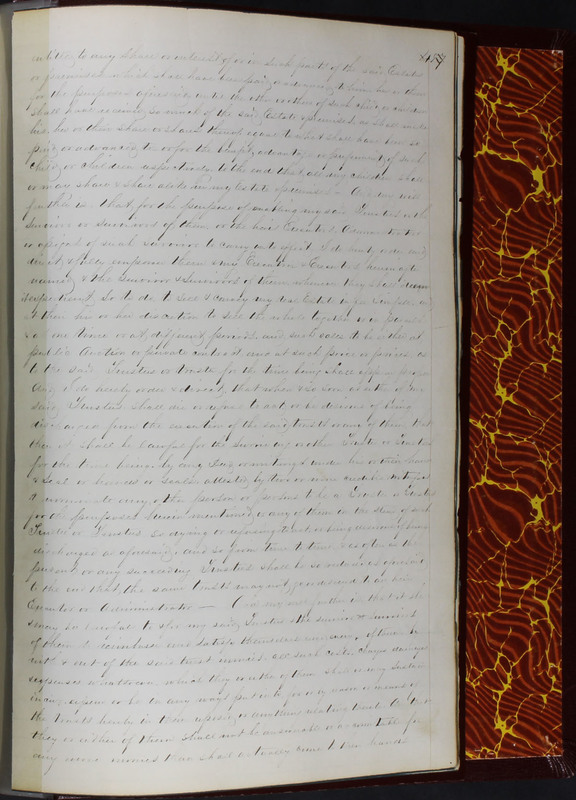 457
entitled to any Share or interest of or in such part of the said Estate
or premises which shall have been paid or advanced to him her or them
for the purposes aforesaid, until the other or others of such child or children
shall have received so much of the said Estate & premises as shall make
his, her or their share or shares thereof equal to what shall have been so
paid or advanced to or for the benefit advantage or preferment of such
child or children respectively to the end that all my children shall
have share & share alike in my Estate & premises. And my will
further is that for the purpose of enabling my said Trustees or the
Survivor or survivors of them, or the heirs Executors Administrators
or assigns of such survivor to carry into effect I do hereby order and
direct & fully empower them & my Executors & Executrix herein after
named & the survivor & survivors of them whenever they shall deem
it expedient, so to do to sell & convey my real Estate in fee simple
at their his or her discretion to sell the whole together or in parcels
& at one time or at different periods, and such sales to be either at
public Auction or private contract and at such price or prices as
to the said Trustees or Trustee for the time being shall appear proper
And I do hereby order & direct, that when & so soon as either of my
said Trustees shall die or refuse to act, or be desirous of being
discharged from the execution of the said trusts or any of them that
then it shall be lawful for the surviving or other Trustee or Trustees
for the time being by any Deed or writing under his or their hand
& Seal or hands & Seals attested by two or more credible witnesses
to nominate any other person or persons to be a Trustee or Trustees
for the purposes herein mentioned or any of them in the stead of such
Trustee or Trustees so dying or refusing to act or being desirous of being
discharged as aforesaid, and so from time to time & as often as the
present or any succeeding Trustees shall be so reduced
to the end that the same trusts may not
Executor or Administrator — And my will further is that it shall
& may be lawful to & for my said Trustees & the survivor & survivors
of them to reimburse and satisfy themselves
with & out of the said trust monies all such costs charges damages
expences which they or either of them shall or may sustain
incur expend or be in any ways put unto for or by reason or means of
the trusts hereby in them reposed, or anything relating thereto. And that
they or either of them shall not be answerable or accountable for
any more monies than shall actually come to their hands